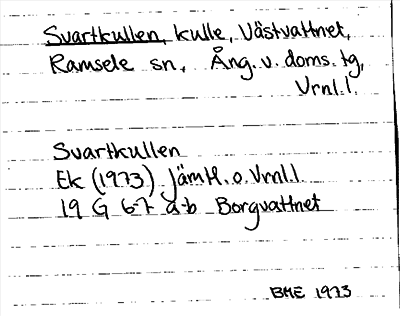 Svartkullen, kulle, Västvattnet,
Ramsele sn, Ång. v. doms. tg,
Vrnl.l.
Svartkullen
Ek (1973) Jämtl. o. Vrnl.l.
19 G 6-7 a-b Borgvattnet
BME 1973